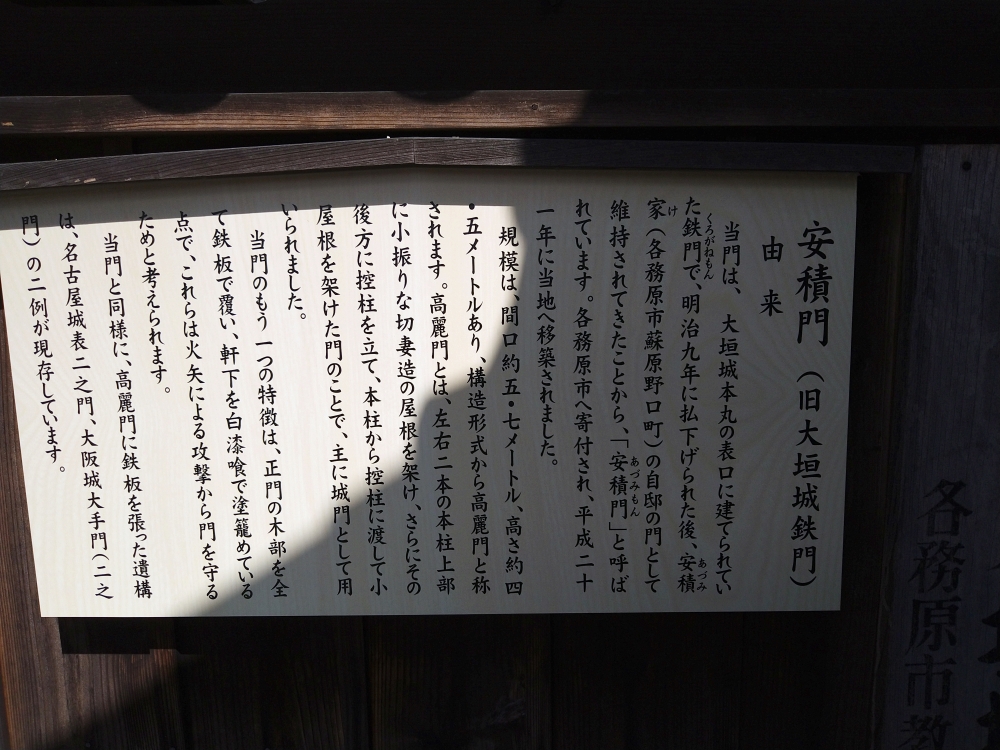 安積門（旧大垣城鉄門）
由来
当門は、大垣城本丸の表口に建てられてい
た鉄門で、明治九年に払下げられた後、安積
くろがねもん
あづみ
家（各務原市蘇原野口町）の自邸の門として
け
維持されてきたことから、「安積門」と呼ば
あづみもん
れています。各務原市へ寄付され、平成二十
一年に当地へ移築されました。
規模は、間口約五・七メートル、高さ約四
・五メートルあり、構造形式から高麗門と称
されます。高麗門とは、左右二本の本柱上部
に小振りな切妻造の屋根を架け、さらにその
後方に控柱を立て、本柱から控柱に渡して小
屋根を架けた門のことで、主に城門として用
いられました。
当門のもう一つの特徴は、正門の木部を全
て鉄板で覆い、軒下を白漆喰で塗籠めている
点で、これらは火矢による攻撃から門を守る
ためと考えられます。
当門と同様に、高麗門に鉄板を張った遺構
は、名古屋城表二之門、大阪城大手門（二之
門）の二例が現存しています。
各務原市教